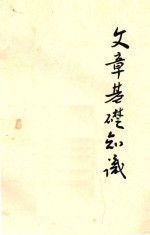 文章基礎知識